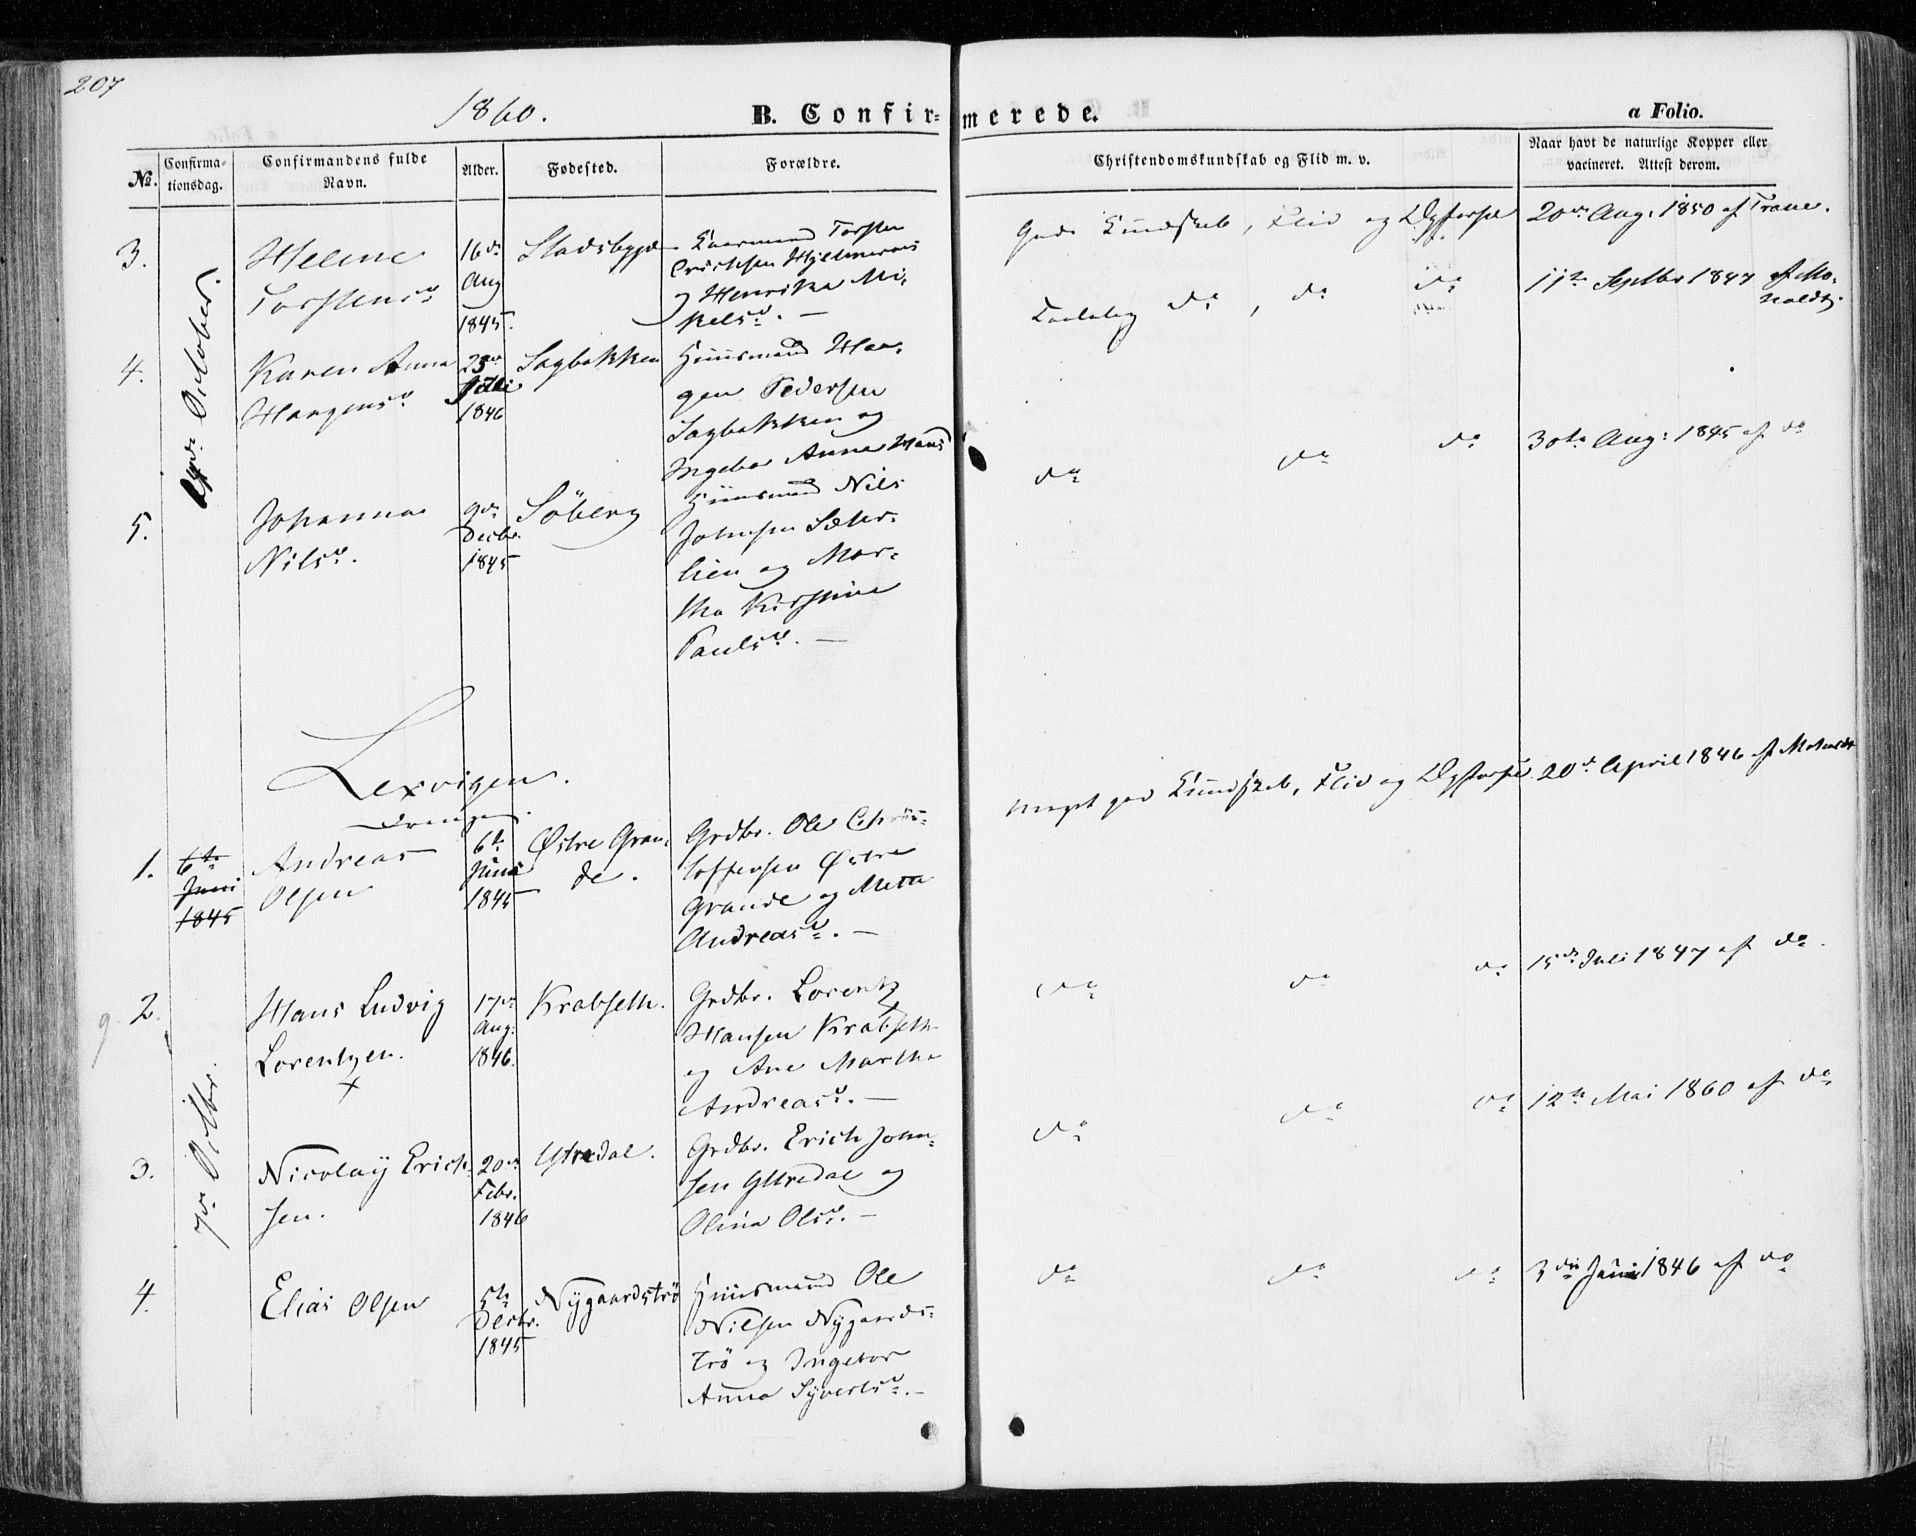 207
1860.
B. Confir-
merede.
a Folio.
No.
Confirma-
tionsdag.
Confirmandens fulde
Navn.
Alder.
Fødested.
Forældre.
Christendomskundskab og Flid m. v.
Naar havt de naturlige Kopper eller
vacineret. Attest derom.
October.
3.
Helene
Torstensd.
16de
Aug
1845.
Stadsbygd
Torsten
Erichsen Hjelmeraas
og Henrika Mi-
kelsd. —
Gode Kundskab, Flid og Opførsel
20de Aug: 1850 af Trane.
4.
Karen Anna
Haagensd.
23de
Juli
1846
Sagbakken
Huusmand Haa-
gen Pedersen
Sagbakken og
Ingebor Anna Hansd
do, do do
11te Septbr 1847 af
5.
Johanna
Nilsd.
9de
Decbr.
1845
Søberg
Huusmand Nils
Johnsen Sæter-
lien og Mar-
tha Kirstine
Paulsd. —
do do do
30te Aug: 1845 af do
Lexvigen.
Drenge.
1.
6te
Juni
1845
Andreas
Olsen
6te
Juni
1845
Østre Gran-
de.
Grdbr. Ole Chris-
toffersen Østre
Grande og Metta
Andreasd. —
meget god Kundskab, Flid og Opførsel
20de April 1846 af
7de Octbr.
2.
Hans Ludvig
Lorentzen.
x
17de
Aug.
1846.
Krabseth.
Grdbr. Lorentz
Hansen Krabseth
og Ane Martha
Andreasd. —
do do do
15de Juli 1847 af do.
3.
Nicolaÿ Erich-
sen.
20de
Febr.
1846
Ytredal.
Grdbr. Erich John-
sen Ytredal og
Olina Olsd. —
do do do
12te Mai 1860 af do
4.
Elias Olsen
5te
Decbr.
1845
Nÿgaardstrø
Huusmand Ole
Nilsen Nÿgaards-
trø og Ingebor
Anna Sÿvertsd. —
do do do
3die Juni 1846 af do